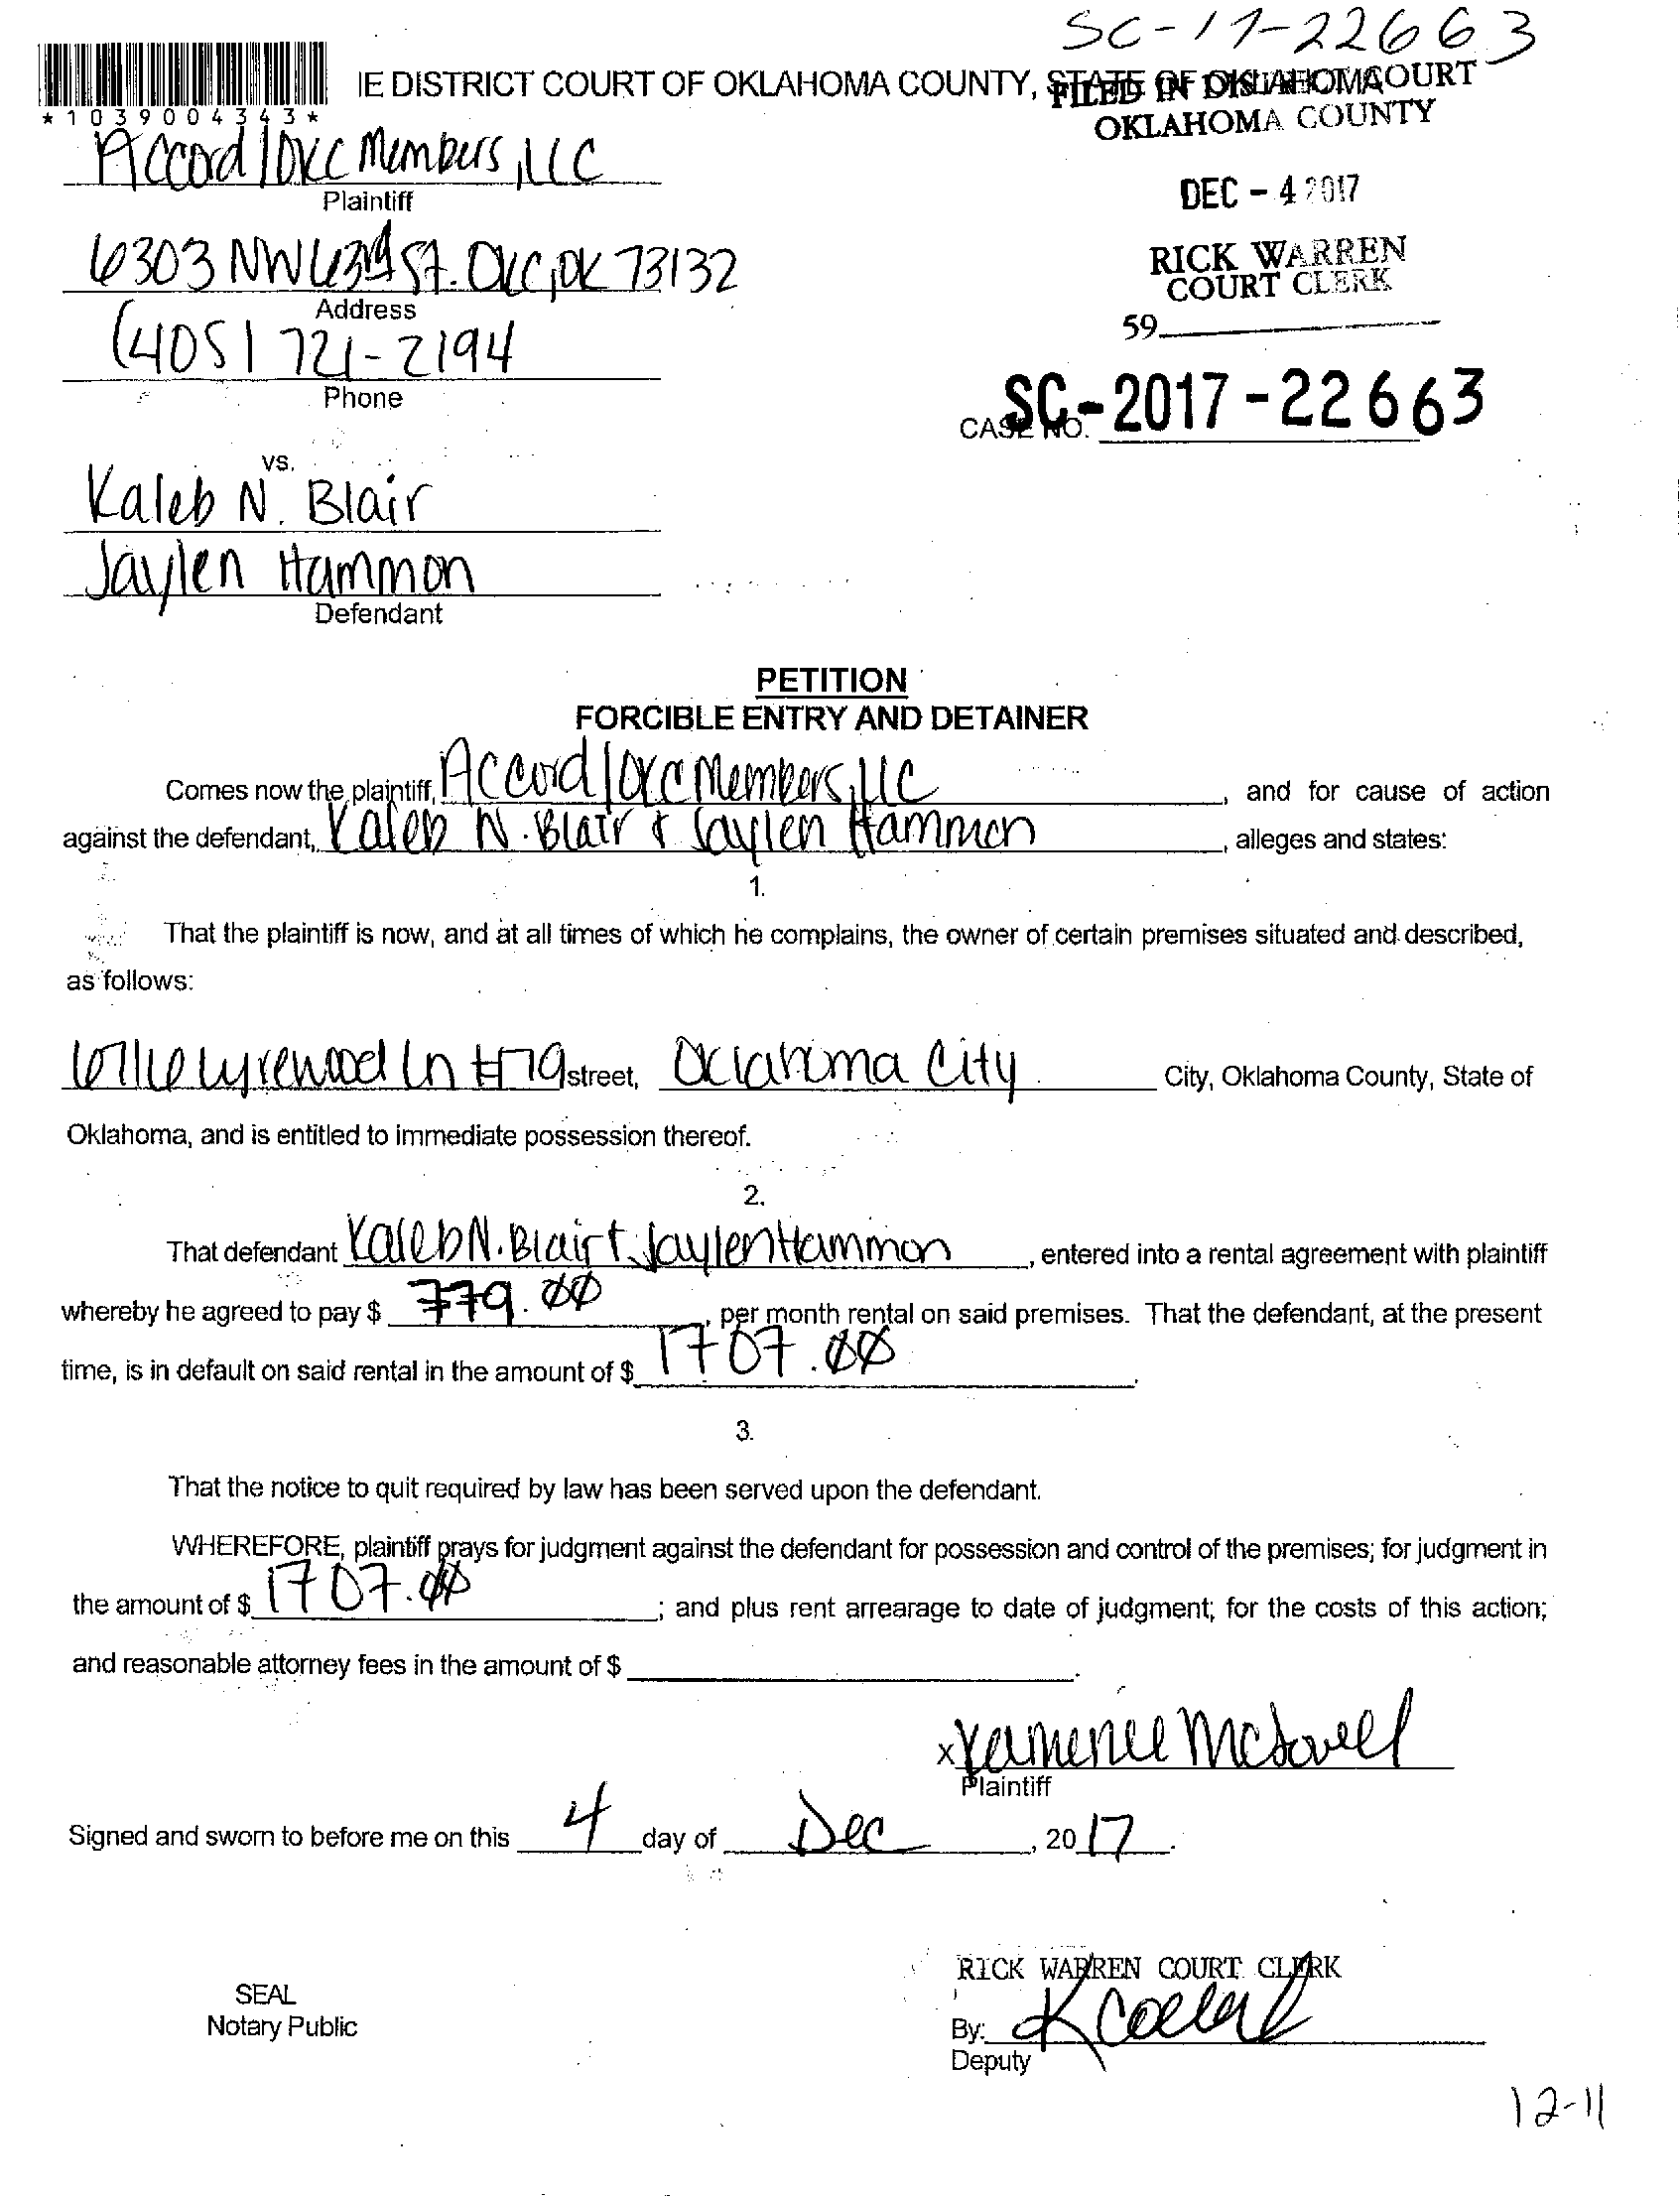 SC-17-22663
*1039004343*
IE DISTRICT COURT OF OKLAHOMA COUNTY, STATE OF OKLAHOMA
FILED IN DISTRICT COURT
OKLAHOMA COUNTY
DEC - 4 2017
RICK WARREN
COURT CLERK
59
Accord/OKC Members, LLC
Plaintiff
6303 NW 63rd St. OKC, OK 73132
Address
(405) 721-2194
Phone
CASE NO. SC-2017-22663
vs.
Kaleb N. Blair
Jaylen Hammon
Defendant
PETITION
FORCIBLE ENTRY AND DETAINER
Comes now the plaintiff, Accord/OKC Members, LLC, and for cause of action
against the defendant, Kaleb N. Blair & Jaylen Hammon, alleges and states:
1.
That the plaintiff is now, and at all times of which he complains, the owner of certain premises situated and described,
as follows:
6716 Lyrewood Ln #79 street, Oklahoma City City, Oklahoma County, State of
Oklahoma, and is entitled to immediate possession thereof.
2.
That defendant Kaleb N. Blair & Jaylen Hammon, entered into a rental agreement with plaintiff
whereby he agreed to pay $ 779.00, per month rental on said premises. That the defendant, at the present
time, is in default on said rental in the amount of $ 1707.00.
3.
That the notice to quit required by law has been served upon the defendant.
WHEREFORE, plaintiff prays for judgment against the defendant for possession and control of the premises; for judgment in
the amount of $ 1707.00; and plus rent arrearage to date of judgment; for the costs of this action;
and reasonable attorney fees in the amount of $ .
x
Plaintiff
Signed and sworn to before me on this 4 day of Dec, 2017.
SEAL
Notary Public
RICK WARREN COURT CLERK
By:
Deputy
12-11